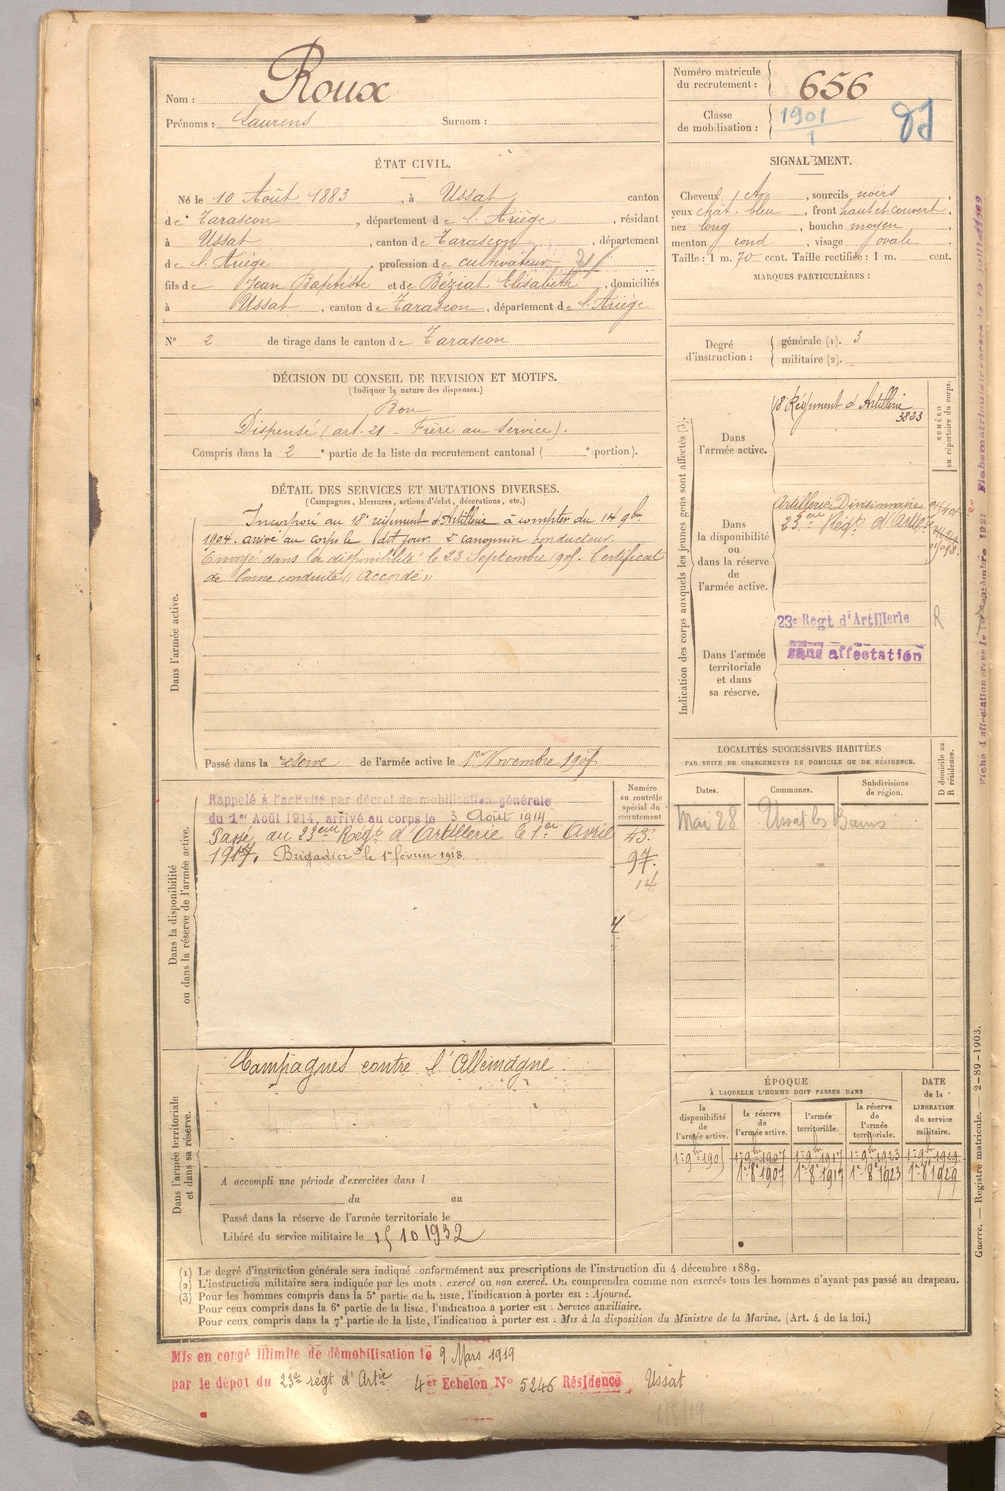 Nom : Roux
Prénoms : Laurens Surnom :
Numéro matricule du recrutement : 656
Classe de mobilisation : 1901
1
ÉTAT CIVIL.
Né le 10 Août 1883, à Ussat, canton
de Tarascon, département de l'Ariège, résidant
à Ussat, canton de Tarascon, département
de l'Ariège, profession de cultivateur
fils de Jean Baptiste et de Béziat Elisabeth, domiciliés
à Ussat, canton de Tarascon, département de l'Ariège
N° 2 de tirage dans le canton de Tarascon
SIGNALEMENT.
Cheveux, sourcils noirs,
yeux chât. bleu, front haut et couvert,
nez long, bouche moyen,
menton rond, visage ovale.
Taille : 1 m. 70 cent. Taille rectifiée : 1 m. cent.
MARQUES PARTICULIÈRES :
Degré d'instruction : générale (1). 3
militaire (2).
DÉCISION DU CONSEIL DE REVISION ET MOTIFS.
(Indiquer la nature des dispenses.)
Bon
Dispensé (art. 21 - Frère au service).
Compris dans la 2e partie de la liste du recrutement cantonal (e portion).
DÉTAIL DES SERVICES ET MUTATIONS DIVERSES.
(Campagnes, blessures, actions d'éclat, décorations, etc.)
Dans l'armée active.
Incorporé au 18e régiment d'Artillerie à compter du 14 9bre
1904. arrivé au corps le dit jour. 2e canonnier conducteur.
Envoyé dans la disponibilité le 23 Septembre 1905. Certificat
de bonne conduite "Accordé"
Passé dans la réserve de l'armée active le 1er Novembre 1907
Indication des corps auxquels les jeunes gens sont affectés (3).
NUMÉRO au répertoire du corps.
Dans l'armée active.
18e Régiment d'Artillerie
3823
Dans la disponibilité ou dans la réserve de l'armée active.
Artillerie Divisionnaire
23eme Régt d'Artie
Dans l'armée territoriale et dans sa réserve.
23e Regt d'Artillerie
R
sans affectation
LOCALITÉS SUCCESSIVES HABITÉES
PAR SUITE DE CHANGEMENTS DE DOMICILE OU DE RÉSIDENCE.
Dates. Communes. Subdivisions de région. D domicile ou R résidence.
Mai 28 Ussat les Bains
Dans la disponibilité ou dans la réserve de l'armée active.
Numéro au contrôle spécial du recrutement
Rappelé à l'activité par décret de mobilisation générale
du 1er Août 1914, arrivé au corps le 3 Août 1914
Passé au 23eme Régt d'Artillerie le 1er Avril
1917. Brigadier le 1er février 1918
97
14
Dans l'armée territoriale et dans sa réserve.
Campagnes contre l'Allemagne
A accompli une période d'exercices dans l
du au
Passé dans la réserve de l'armée territoriale le
Libéré du service militaire le 15 10 1932
ÉPOQUE
À LAQUELLE L'HOMME DOIT PASSER DANS
DATE de la LIBÉRATION du service militaire.
la disponibilité de l'armée active. la réserve de l'armée active. l'armée territoriale. la réserve de l'armée territoriale.
1er 9bre 1905 1er 9bre 1907 1er 9bre 1917 1er 9bre 1923 1er 9bre 1929
1er 8e 1907 1er 8e 1917 1er 8e 1923 1er 8e 1929
(1) Le degré d'instruction générale sera indiqué conformément aux prescriptions de l'instruction du 4 décembre 1889.
(2) L'instruction militaire sera indiquée par les mots : exercé ou non exercé. On comprendra comme non exercés tous les hommes n'ayant pas passé au drapeau.
(3) Pour les hommes compris dans la 5e partie de la liste, l'indication à porter est : Ajourné.
Pour ceux compris dans la 6e partie de la liste, l'indication à porter est : Service auxiliaire.
Pour ceux compris dans la 7e partie de la liste, l'indication à porter est : Mis à la disposition du Ministre de la Marine. (Art. 4 de la loi.)
Guerre. — Registre matricule. — 2-89-1903.
Mis en congé illimité de démobilisation le 9 Mars 1919
par le dépot du 23e régt d'Artie 4er Echelon N° 5246 Résidence Ussat